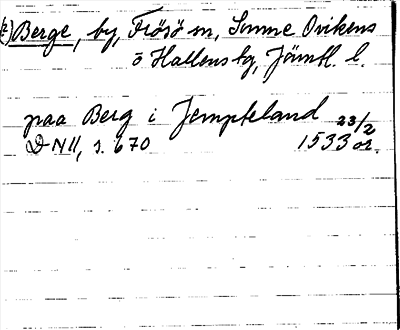 Berge, by, Frösö sn, Sunne Ovikens
o Hallens tg, Jämtl. l.
paa Berg i Jempteland 23/2
DN II, s. 670 1533 or.